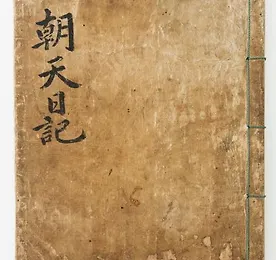 朝天日記